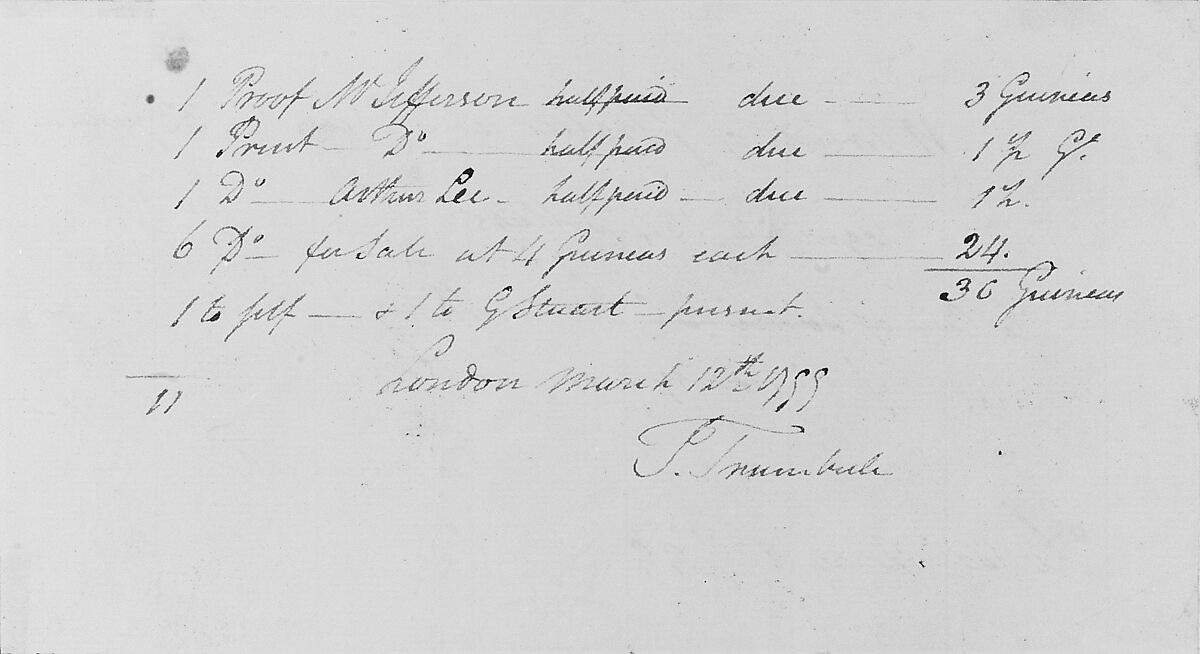 1 Proof Mr Jefferson half paid due — 3 Guineas
1 Print — Do — half paid due — 1½ Gs.
1 Do — Arthur Lee - half paid — due — 1½.
6 Do — for Sale at 4 Guineas each — 24.
30 Guineas
1 to self — & 1 to G Stuart — present.
London March 12th 1799
11
J. Trumbull